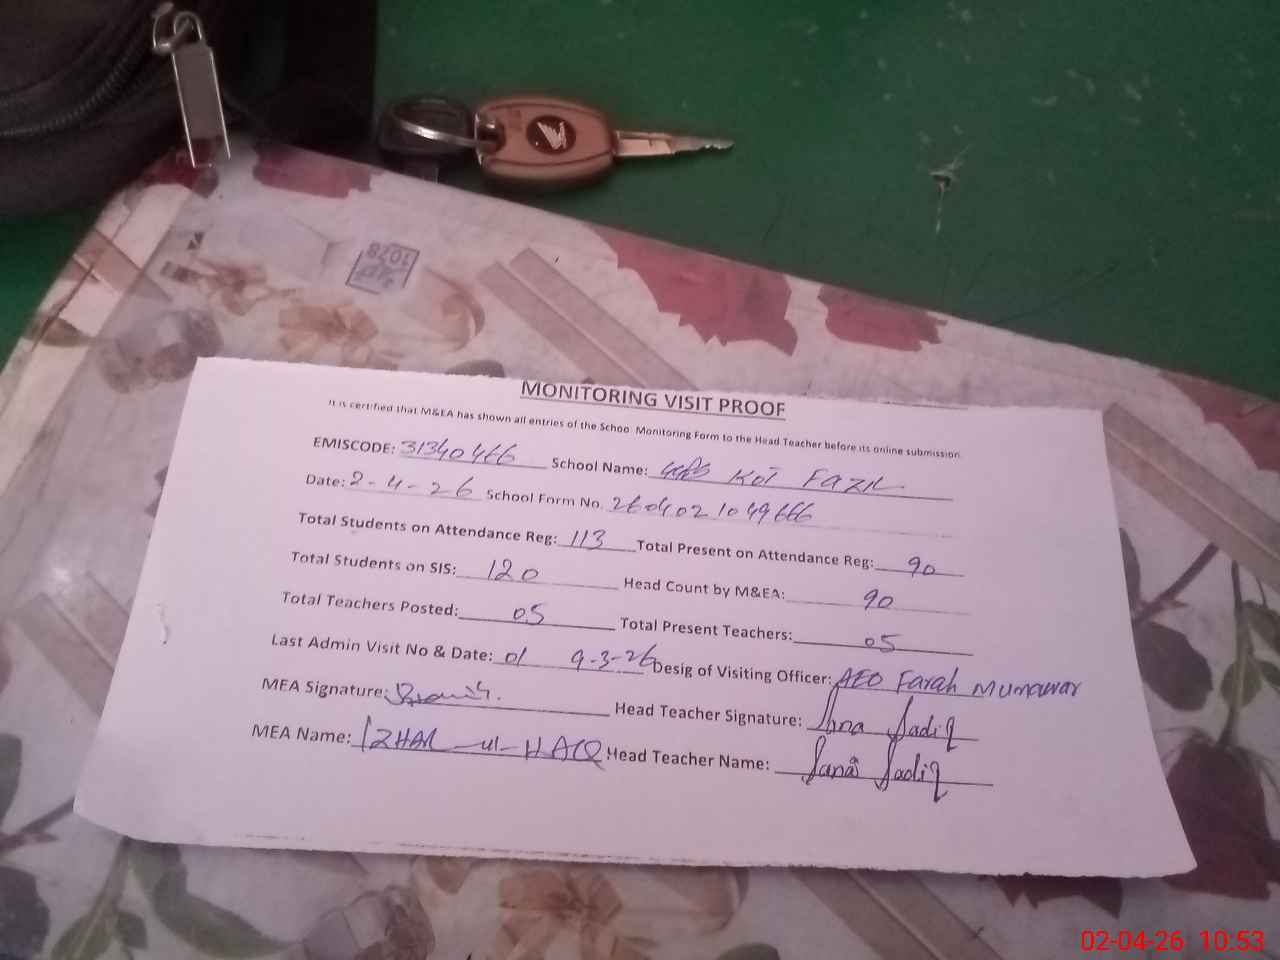 1078
MONITORING VISIT PROOF
It is certified that M&EA has shown all entries of the Schoo Monitoring Form to the Head Teacher before its online submission.
EMISCODE: 31340466 School Name: GPS KOT FAZIL
Date: 2-4-26 School Form No. 260402 1049666
Total Students on Attendance Reg: 113 Total Present on Attendance Reg: 90
Total Students on SIS: 120 Head Count by M&EA: 90
Total Teachers Posted: 05 Total Present Teachers: 05
Last Admin Visit No & Date: 01 9-3-26 Desig of Visiting Officer: AEO Farah Munawar
MEA Signature: Head Teacher Signature: Sana Sadiq
MEA Name: IZHAR-ul-HAQ Head Teacher Name: Sana Sadiq
02-04-26 10:53